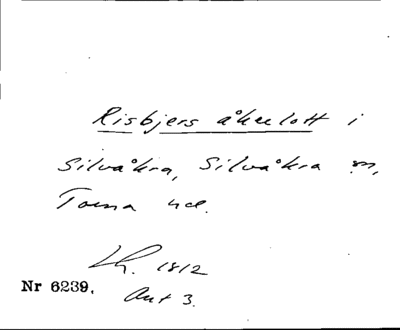 Risbjers åkrelott i
Silvåkra, Silvåkra sn,
Torna hd.
Lh. 1812
Nr 6239.
Akt 3.